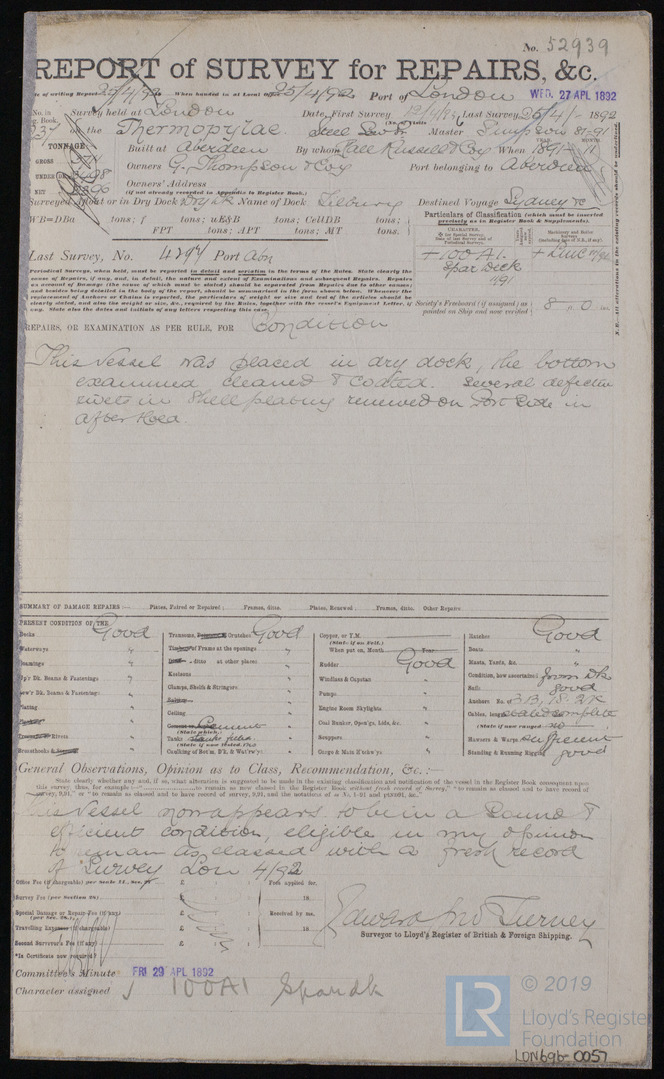 No. 52939
REPORT of SURVEY for REPAIRS, &c.
of writing Report 25/4/92 When handed in at Local Office 25/4/92 Port of London WED. 27 APL 1892
No. in Survey held at London Date, First Survey Last Survey 25/4/ 1892
Book.
237 on the Thermopylae Master Simpson
TONNAGE Built at Aberdeen By whom Hall Russell & Coy When 1891 11
GROSS Owners G. Thompson & Coy Port belonging to Aberdeen
UNDER
NET Owners' Address
(if not already recorded in Appendix to Register Book.)
Surveyed Afloat or in Dry Dock Dry dk Name of Dock Tilbury Destined Voyage Sydney &c
WB=DBa tons; f tons; uE&B tons; CellDB tons;
FPT tons; APT tons; MT tons.
Particulars of Classification (which must be inserted
precisely as in Register Book & Supplements).
Last Survey, No. 4294 Port Abn
+ 100 A1. + LMC
Spar Deck
Periodical Surveys, when held, must be reported in detail and seriatim in the terms of the Rules. State clearly the
cause of Repairs, if any, and, in detail, the nature and extent of Examinations and subsequent Repairs. Repairs
on account of Damage (the cause of which must be stated) should be separated from Repairs due to other causes;
and besides being detailed in the body of the report, should be summarised in the form shown below. Whenever the
replacement of Anchors or Chains is reported, the particulars of weight or size and test of the articles should be
clearly stated, and also the weight or size, &c., required by the Rules, together with the vessel's Equipment Letter, if
any. State also the dates and initials of any letters respecting this case.
Society's Freeboard (if assigned) as
painted on Ship and now verified 8 ft. 0 in.
N.B.—All alterations in the existing records should be underlined.
REPAIRS, OR EXAMINATION AS PER RULE, FOR Condition
This Vessel was placed in dry dock, the bottom
examined cleaned & coated. Several defective
rivets in Shell plating renewed on Port Side in
after Hold.
SUMMARY OF DAMAGE REPAIRS:— Plates, Faired or Repaired; Frames, ditto. Plates, Renewed; Frames, ditto. Other Repairs
PRESENT CONDITION OF THE
Decks Good
Waterways "
Coamings "
Up'r Dk. Beams & Fastenings "
Low'r Dk. Beams & Fastenings "
Plating "
Rivets "
Breasthooks & "
Transoms, Crutches Good
Frames at the openings "
ditto at other places "
Keelsons "
Clamps, Shelfs & Stringers "
Ceiling "
Cement
(State which.)
Tanks
(State if now tested.)
Caulking of Bot'm, D'k, & Wat'rw'ys "
Copper, or Y.M.
(State if on Felt.)
When put on, Month Year
Rudder Good
Windlass & Capstan "
Pumps "
Engine Room Skylights "
Coal Bunker, Open'gs, Lids, &c. "
Scuppers "
Cargo & Main H'tchw'ys "
Hatches Good
Boats "
Masts, Yards, &c. "
Condition, how ascertained from Dk
Sails good
Anchors No. 3B, 1S. 2K
Cables, length complete
(State if now ranged) no
Hawsers & Warps sufficient
Standing & Running Rigging good
General Observations, Opinion as to Class, Recommendation, &c. :—
This Vessel now appears to be in a Sound &
efficient condition, eligible in my opinion
to remain as classed with a fresh record
of Survey Lon 4/92
Office Fee (if chargeable) per Scale £ Fees applied for,
Survey Fee (per Section 28) £ 18
Special Damage or Repair Fee (if any)
(per Sec. 28.) £ Received by me,
Travelling Expenses (if chargeable) £ 18
Second Surveyor's Fee (if any) £
Edward Jno Tierney
Surveyor to Lloyd's Register of British & Foreign Shipping.
*Is Certificate now required?
Committee's Minute FRI 29 APL 1892
Character assigned 100A1 Spar dk
LR
© 2019
Lloyd's Register
Foundation
LDN696-0057